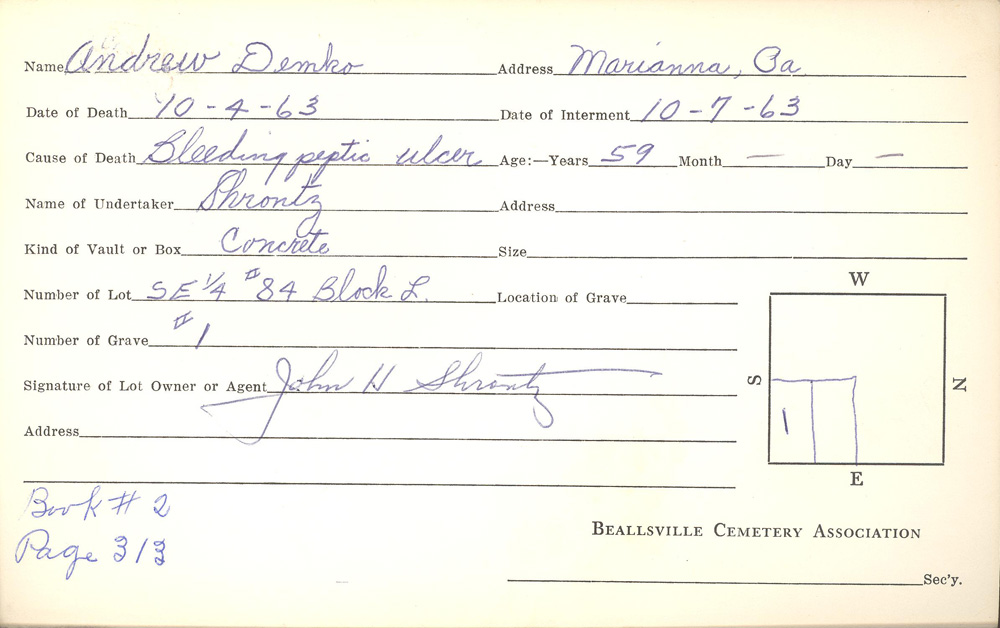 Name Andrew Demko Address Marianna, Pa
Date of Death 10-4-63 Date of Interment 10-7-63
Cause of Death Bleeding peptic ulcer Age:—Years 59 Month — Day —
Name of Undertaker Shrontz Address
Kind of Vault or Box Concrete Size
Number of Lot SE 1/4 #84 Block L. Location of Grave
Number of Grave #1
Signature of Lot Owner or Agent John H Shrontz
Address
W
S
N
1
E
Book # 2
Page 313
BEALLSVILLE CEMETERY ASSOCIATION
Sec'y.